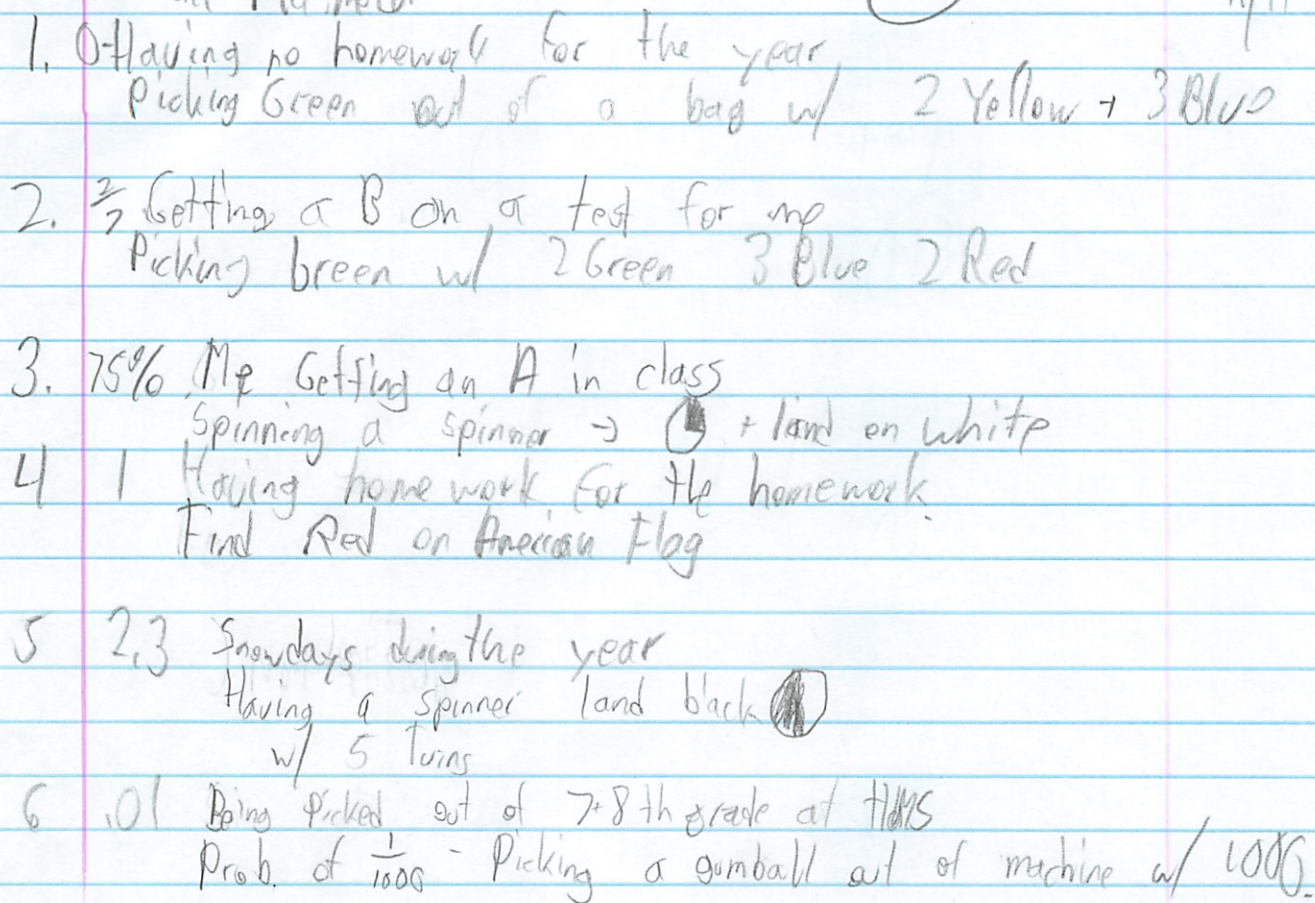 1. 0 Having no homework for the year
Picking Green out of a bag w/ 2 Yellow + 3 Blue
2. 2/7 Getting a B on a test for me
Picking Green w/ 2 Green 3 Blue 2 Red
3. 75% Me Getting an A in class
Spinning a spinner → + land on white
4 1 Having home work for the homework.
Find Red on American Flag
5 2,3 Snowdays during the year
Having a spinner land black
w/ 5 Turns
6 .01 Being Picked out of 7+8th grade at HDMS
Prob. of 1/1000 - Picking a gumball out of machine w/ 1000.